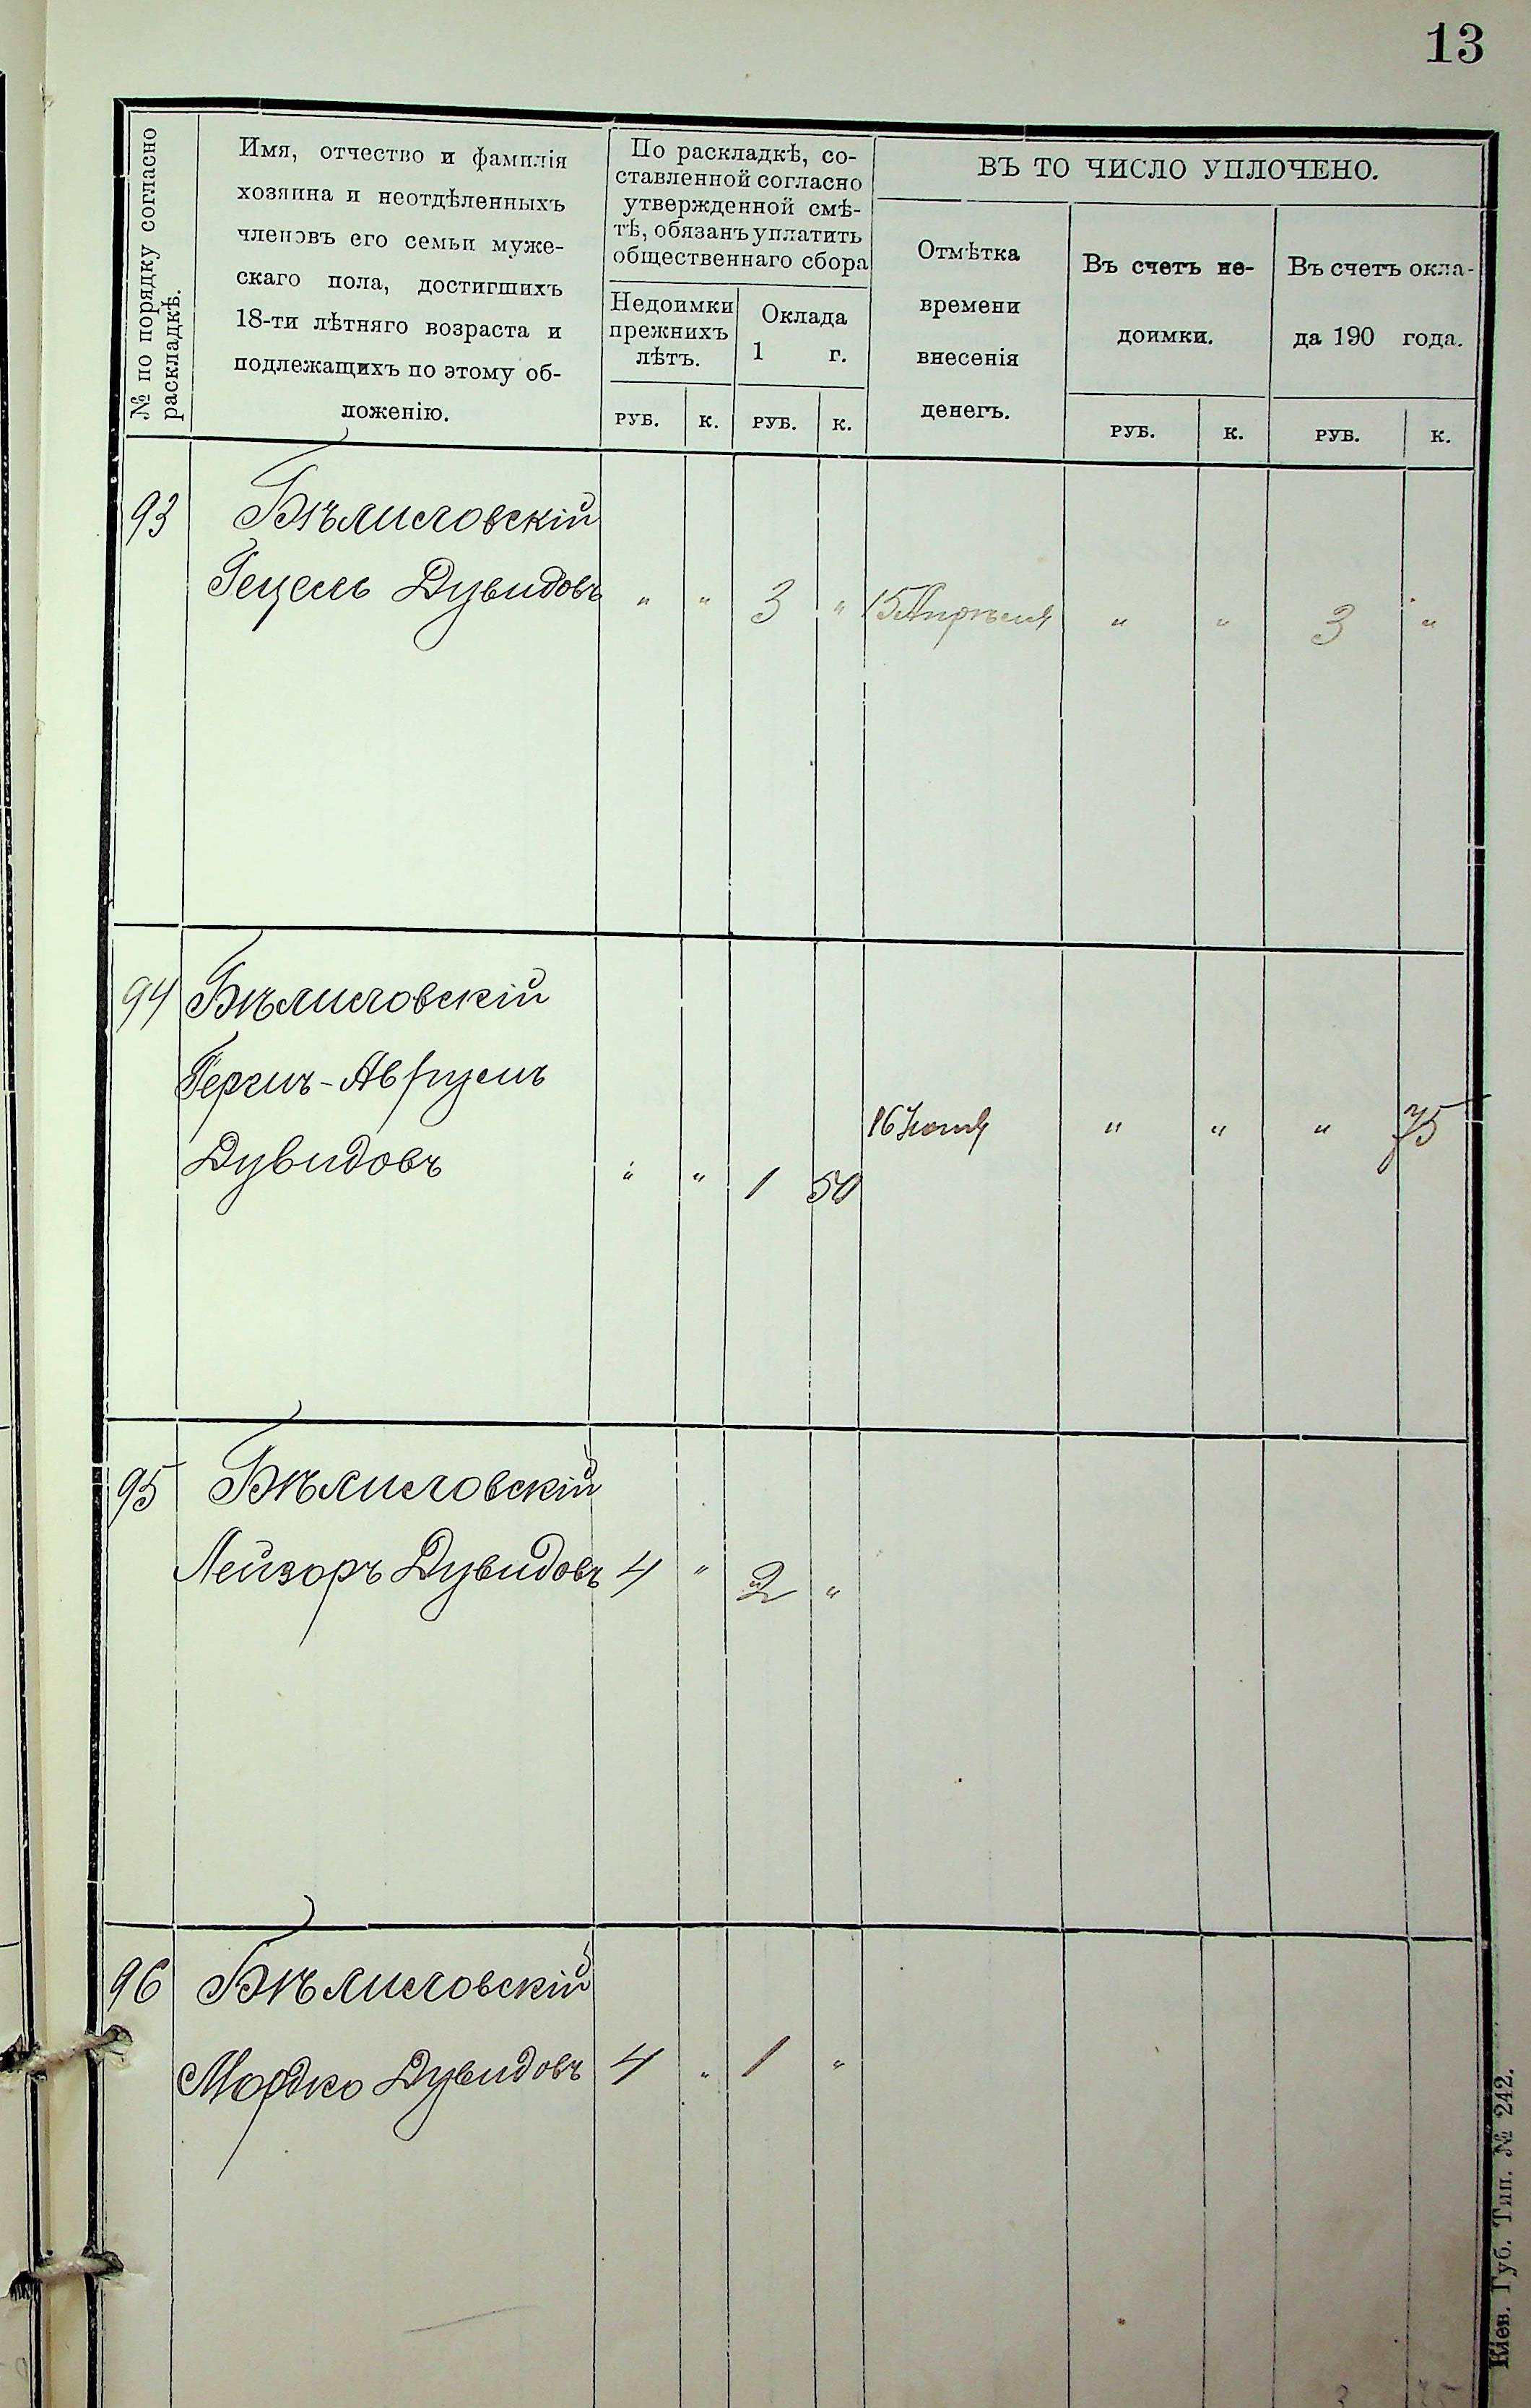 13
№ по порядку согласно
раскладкѣ.
Имя, отчество и фамилія
хозяина и неотдѣленныхъ
членовъ его семьи муже-
скаго пола, достигшихъ
18-ти лѣтняго возраста и
подлежащихъ по этому об-
ложенію.
По раскладкѣ, со-
ставленной согласно
утвержденной смѣ-
тѣ, обязанъ уплатить
общественнаго сбора
Недоимки
прежнихъ
лѣтъ.
Оклада
1 г.
РУБ. К. РУБ. К.
ВЪ ТО ЧИСЛО УПЛОЧЕНО.
Отмѣтка
времени
внесенія
денегъ.
Въ счетъ не-
доимки.
Въ счетъ окла-
да 190 года.
РУБ. К. РУБ. К.
93 Бѣлиловскій
Гецель Дувидовъ " " 3 " 15 Апрѣля " " 3 "
94 Бѣлиловскій
Авруль
16 Іюня " " " 75
Дувидовъ " " 1 50
95 Бѣлиловскій
Лейзоръ Дувидовъ 4 " 2 "
96 Бѣлиловскій
Мордко Дувидовъ 4 " 1 "
Кіев. Губ. Тип. № 242.